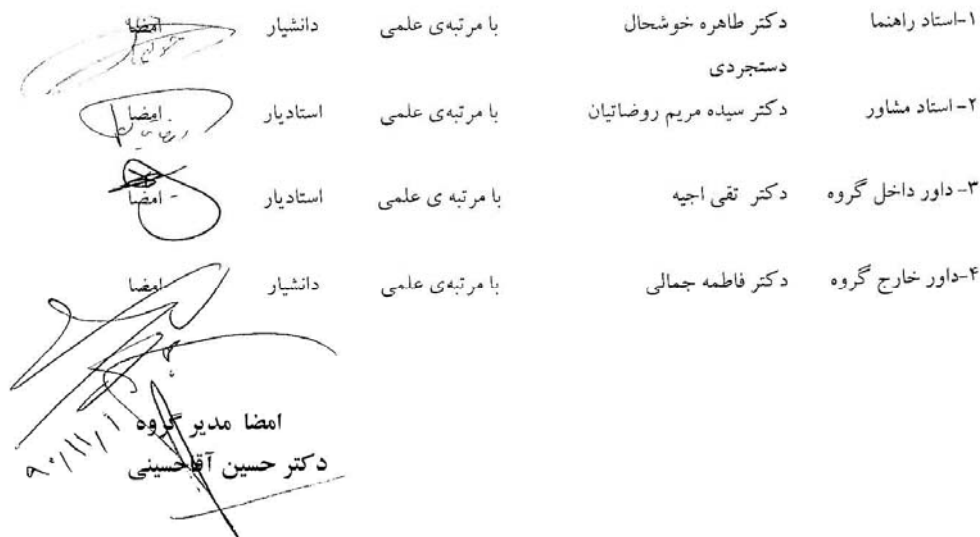 ۱-استاد راهنما دکتر طاهره خوشحال با مرتبه‌ی علمی دانشیار امضا
دستجردی
۲- استاد مشاور دکتر سیده مریم روضاتیان با مرتبه‌ی علمی استادیار امضا
۳- داور داخل گروه دکتر تقی اجیه با مرتبه ی علمی استادیار امضا
۴-داور خارج گروه دکتر فاطمه جمالی با مرتبه‌ی علمی دانشیار امضا
امضا مدیر گروه
دکتر حسین آقاحسینی
۹۰/۱۱/۱